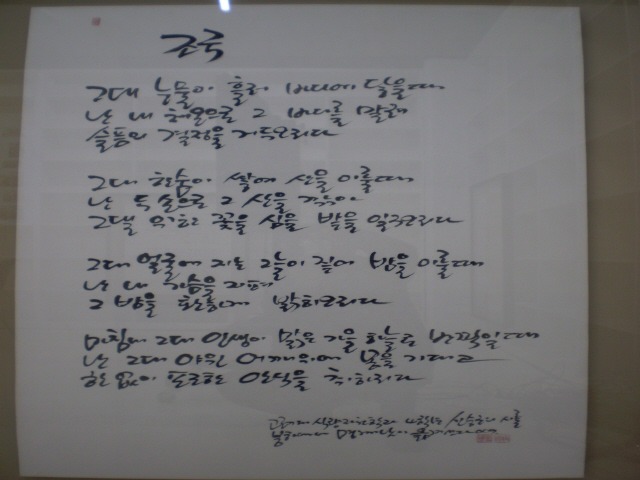 조국
그대 눈물이 흘러 바다에 닿을때
난 내 체온으로 그 바다를 말려
슬픔의 결정을 거두오리다
그대 한숨이 쌓여 산을 이룰때
난 두 손으로 그 산을 깎아
그댈 위한 꽃을 심을 밭을 일구오리다
그대 얼굴에 지는 그늘이 깊어 밤을 이룰때
난 내 가슴을 지펴
그 밤을 환하게 밝히오리다
마침내 그대 인생이 맑은 겨울 하늘로 반짝일때
난 그대 야윈 어깨위에 몸을 기대고
한없이 포근한 안식을 취하리다
시를